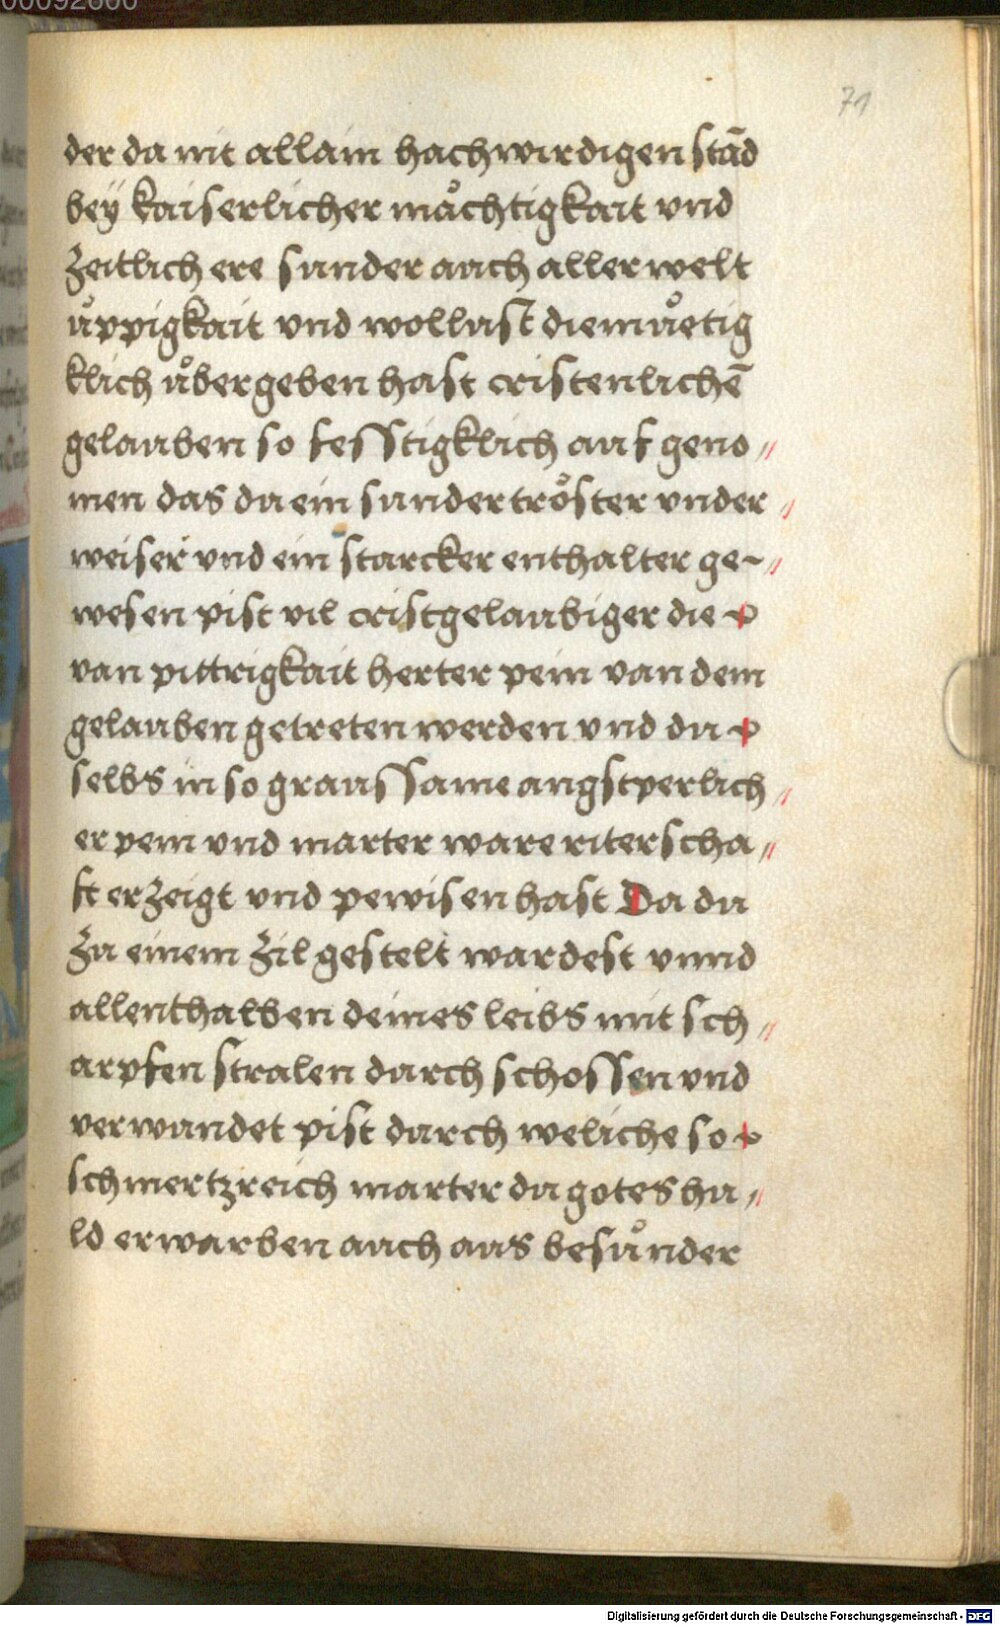 00092600
71
der da nit allain hachwirdigen stãd
bey kaiserlicher mächtigkait vnd
zeitlich ere sunder auch aller welt
üppigkait vnd wollust diemuetig
klich übergeben hast cristenlichē
gelauben so fesstigklich auf geno〃
men das du ein sunder tröster vnder〃
weiser vnd ein starcker enthalter ge〃
wesen pist vil cristgelaubiger die
van pittrigkait herter pein van dem
gelauben getreten werden vnd du
selbs in so graussame angstperlich〃
er pein vnd marter ware riterscha〃
ft erzeigt vnd pewisen hast Da du
zu einem zil gestelt wardest vnnd
allenthalben deines leibs mit sch〃
arpfen stralen durch schossen vnd
verwundet pist durch weliche so
schmertzreich marter du gotes hu〃
ld erwarben auch aus besunder
Digitalisierung gefördert durch die Deutsche Forschungsgemeinschaft - DFG